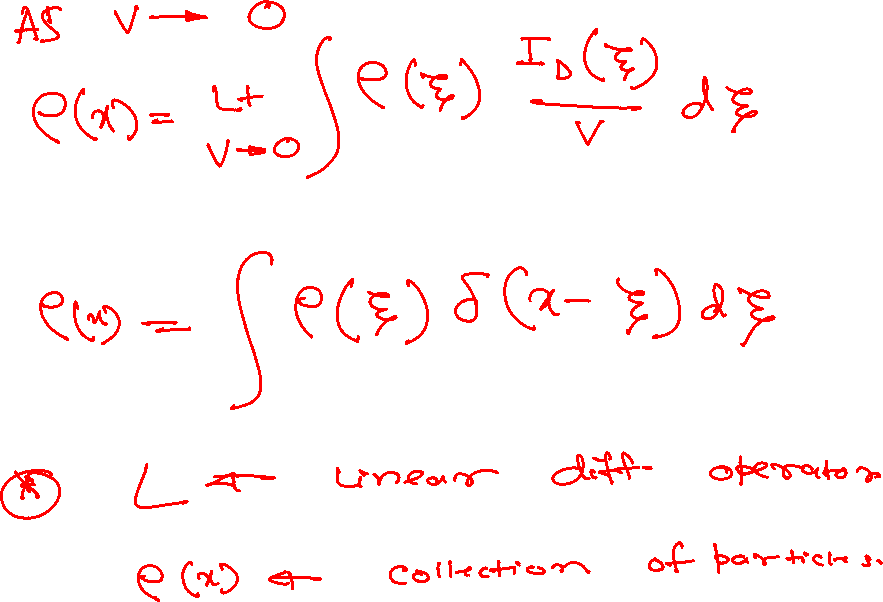 AS V → 0
ρ(x) = Lt V→0 ∫ ρ(ξ) I_D(ξ)/V dξ
ρ(x) = ∫ ρ(ξ) δ(x - ξ) dξ
⊛ L ← Linear diff. operator
ρ(x) ← collection of particles.